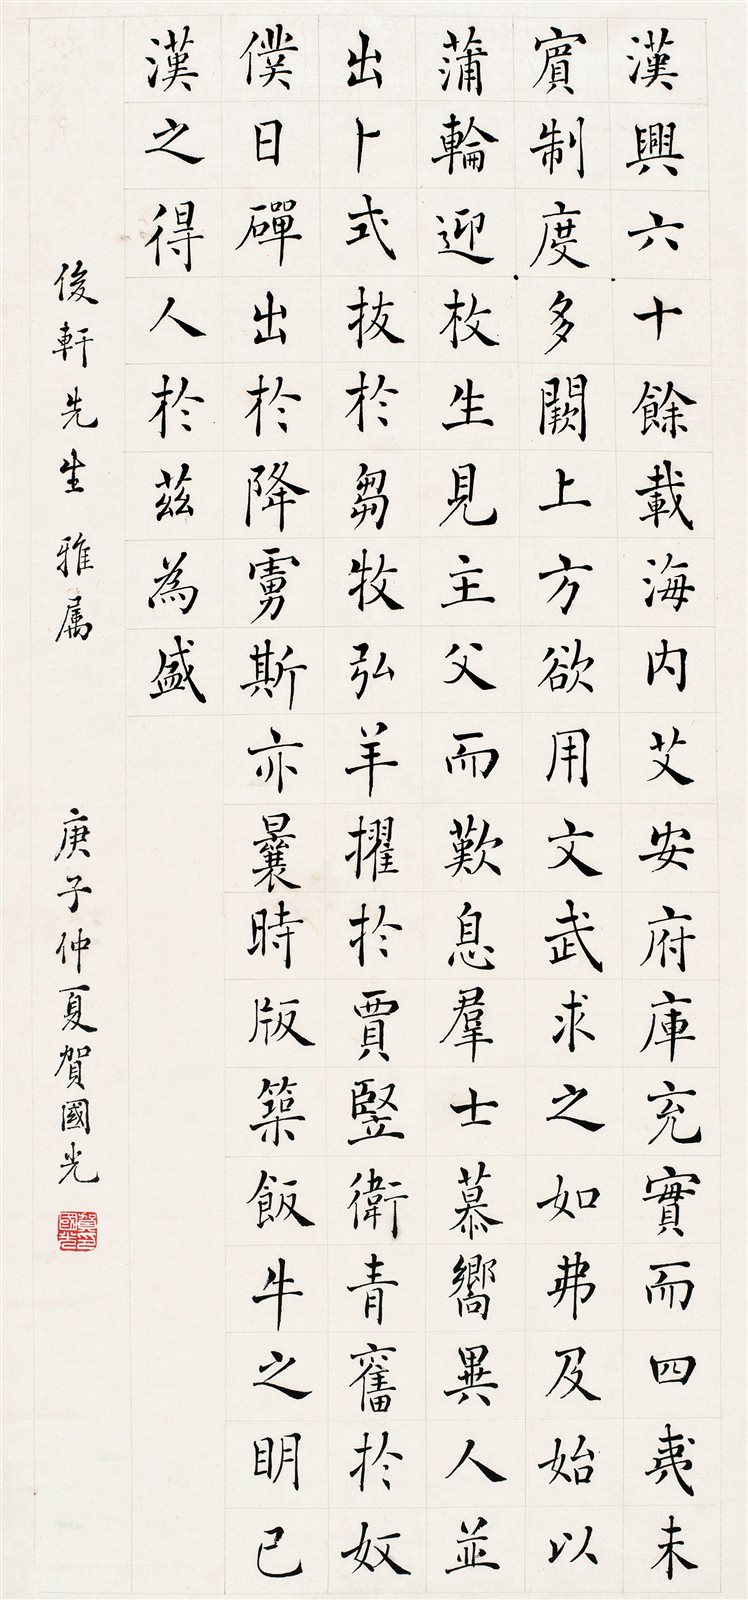 漢興六十餘載海内艾安府庫充實而四夷未
賔制度多闕上方欲用文武求之如弗及始以
蒲輪迎枚生見主父而歎息羣士慕嚮異人並
出卜式拔於芻牧弘羊擢於賈豎衛青奮於奴
僕日磾出於降虜斯亦曩時版築飯牛之明已
漢之得人於茲為盛
俊軒先生 雅属
庚子仲夏賀國光
賀國光印